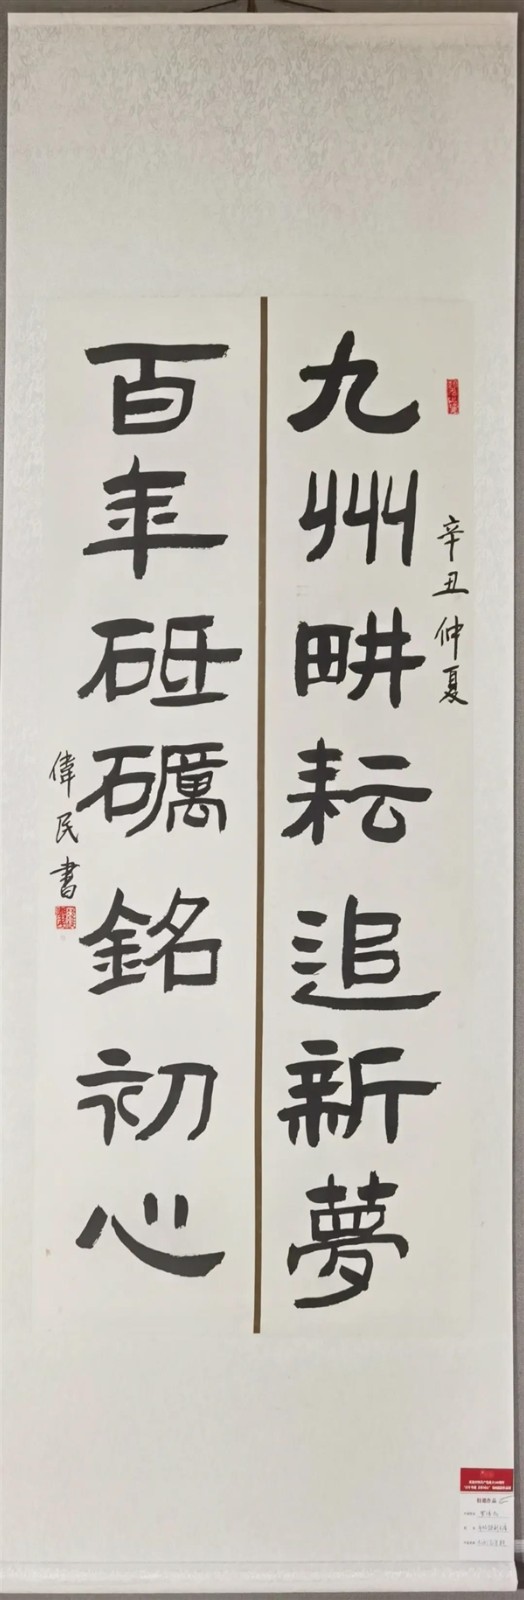 辛丑仲夏
九州畊耘追新夢
百年砥礪銘初心
偉民書